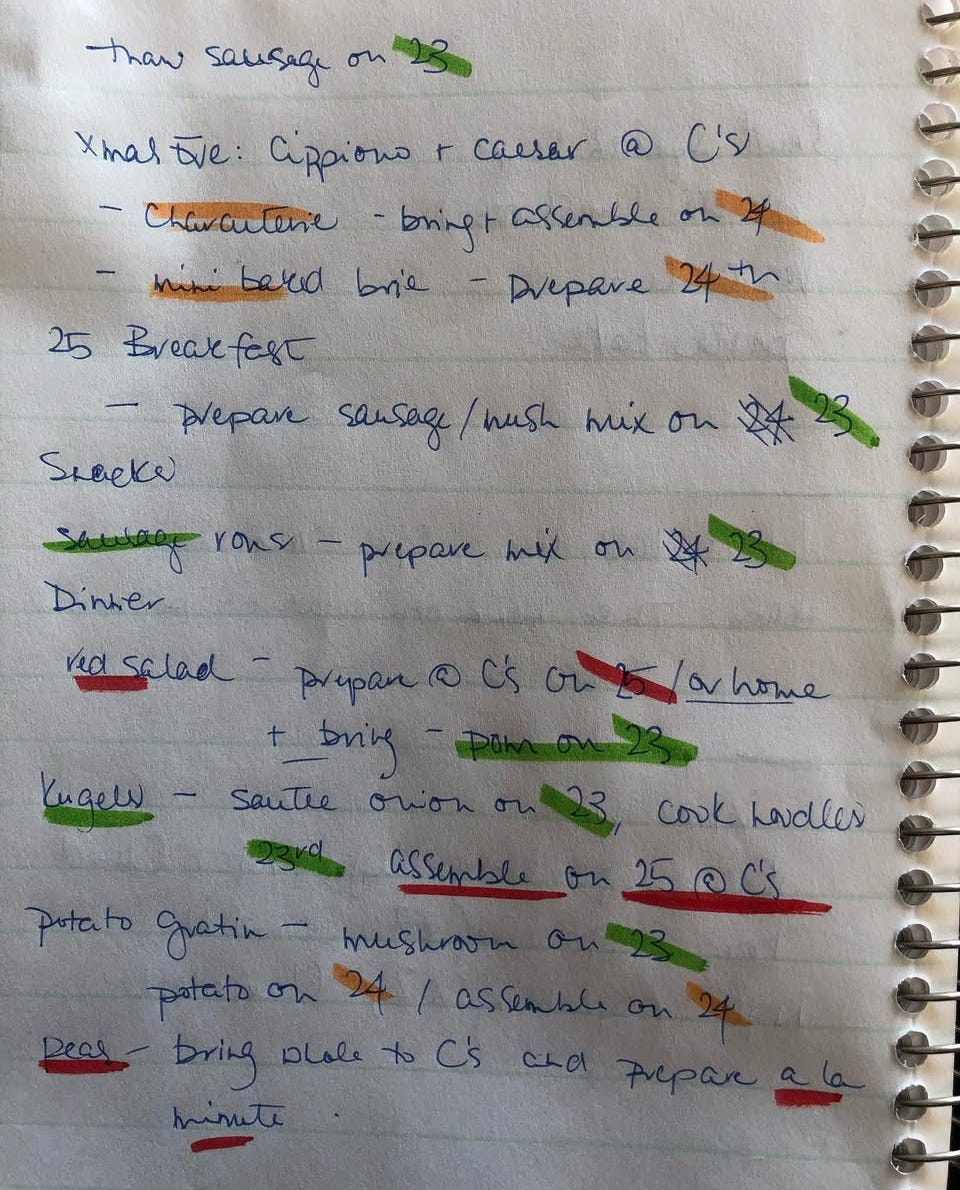 thaw sausage on 23
Xmas Eve: Cippiono + caesar @ C's
- Charcuterie - bring + assemble on 24
- mini baked brie - prepare 24th
25 Breakfast
- prepare sausage/mush mix on 24 23
Snacks
sausage rolls - prepare mix on 24 23
Dinner
red salad - prepare @ C's on 25 / or home
+ bring - pom on 23
Kugels - sautee onion on 23, cook noodles
23rd assemble on 25 @ C's
potato gratin - mushroom on 23
potato on 24 / assemble on 24
peas - bring whole to C's and prepare a la
minute